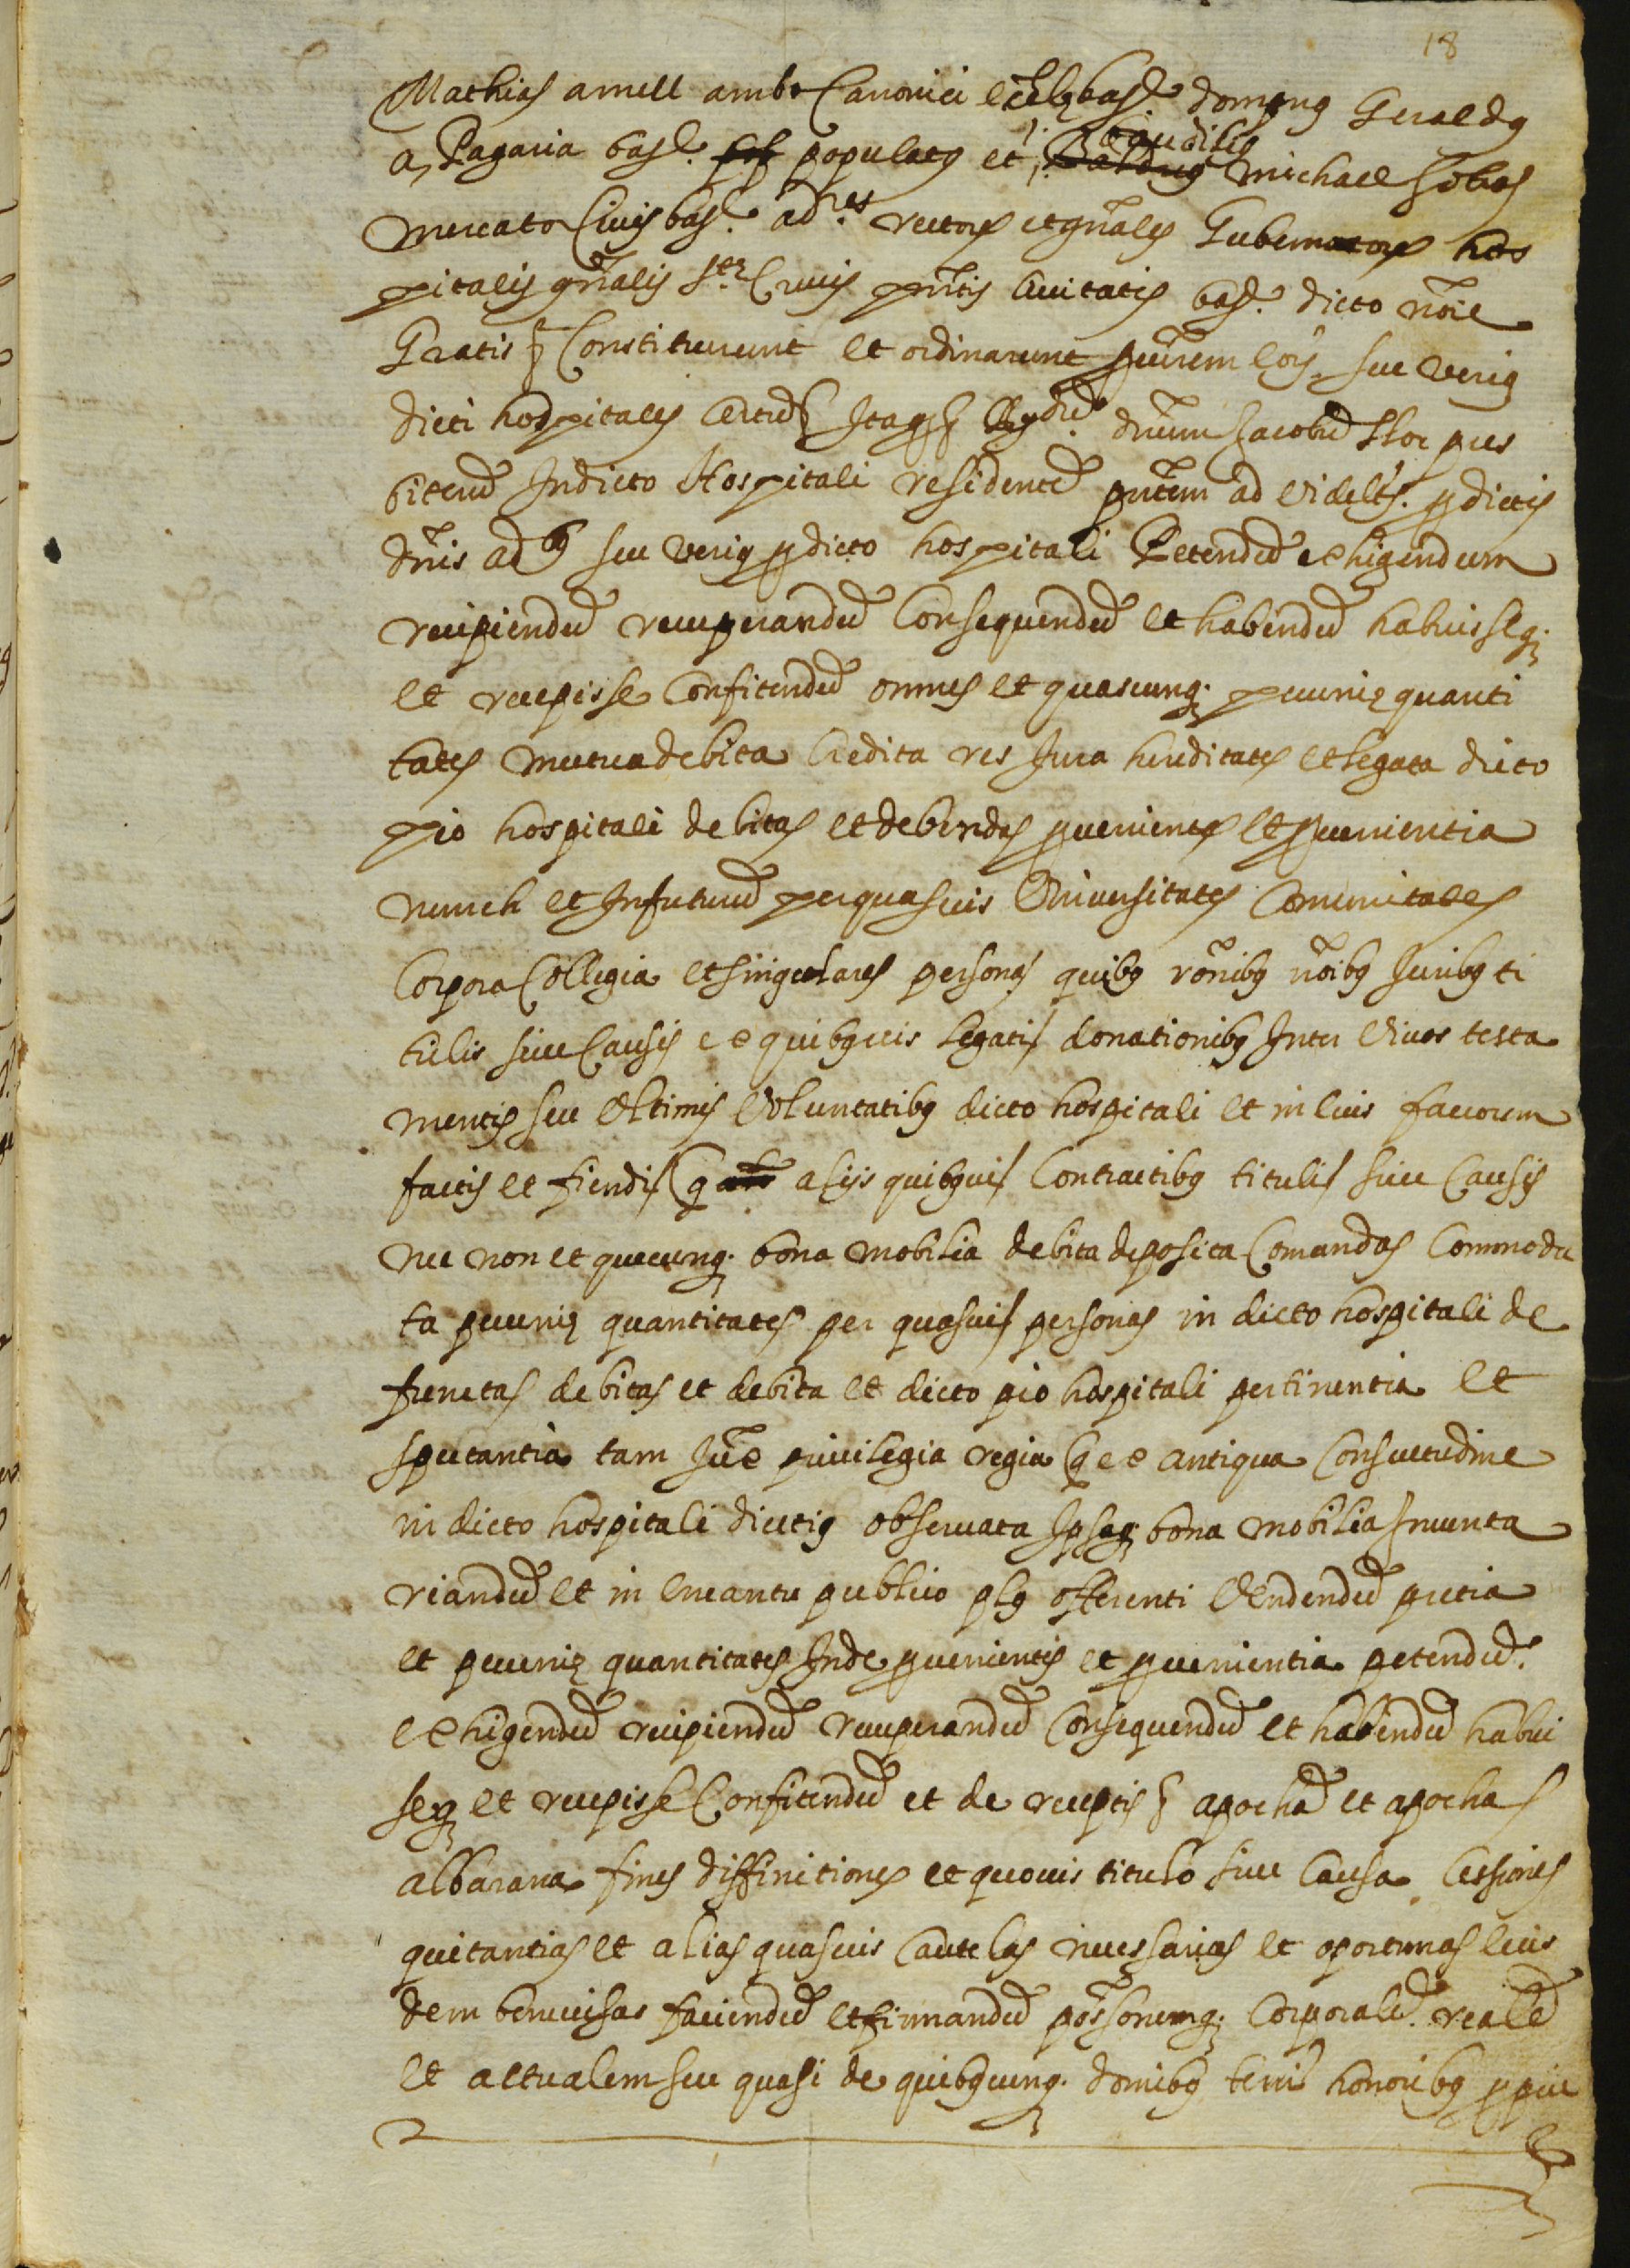 18
Mathias amell ambo Canonici eccłę bar. domịnus Geraldus
a Pagaria bar. populatus et Claudius michael sobas
mercator Civis bar. adres rectores et gñales Gubernatores hos
pitalis gñalis Stę Crucis pñtis Civitatis bar. dicto noïe
Gratis & Constituerunt et ordinarunt eorum seu verius
dicti hospitalis Certum & Itaq & dnum Jacobum flor pres
biterum Indicto Hospitali residentem pñtem ad videlt. pro dictis
dnis ad seu verius pro dicto hospitali Petendum exhigendum
recipiendum recuperandum Consequendum et habendum habuisseq;
et recepisse Confitendum omnes et quascunq; pecunię quanti
tates mutua debita Credita res Jura hereditates et legata dicto
pio hospitali debitas et debendas provenientes et provenientia
nunch et Infuturum per quasvis Universitates Comunitates
Corpora Collegia et singulares personas quibus ronibus noibus Juribus ti
tulis sive Causis ex quibusvis legatis donationibus Inter Vivos testa
mentis seu Ultimis Voluntatibus dicto hospitali et in eius favorem
factis et fiendis Q alijs quibusvis Contractibus titulis sive Causis
nec non et quecunq; bona mobilia debita deposita Comandas Commoda
ta pecunię quantitates per quasvis personas in dicto hospitali de
functas debitas et debita et dicto pio hospitali pertinentia et
spectantia tam Jure privilegia regia Q ex antiqua Consuetudine
in dicto hospitali diutius observata Ipsaq; bona mobilia Inventa
riandum et in encantu publico plus offerenti Vendendum pretia
et pecunię quantitates Inde provenientis et provenientia petendum.
exhigendum recipiendum recuperandum Consequendum et habendum habui
seq; et recepisse Confitendum et de receptis & apocham et apochas
albarana fines diffinitiones et quovis titulo sive Causa Cessiones
quitantias et alias quasvis Cautelas necessarias et oportunas eius
dem benevisas faciendum et firmandum possonemq; Corporalem. realem
et actualem seu quasi de quibuscunq; domibus terris honoribus propie